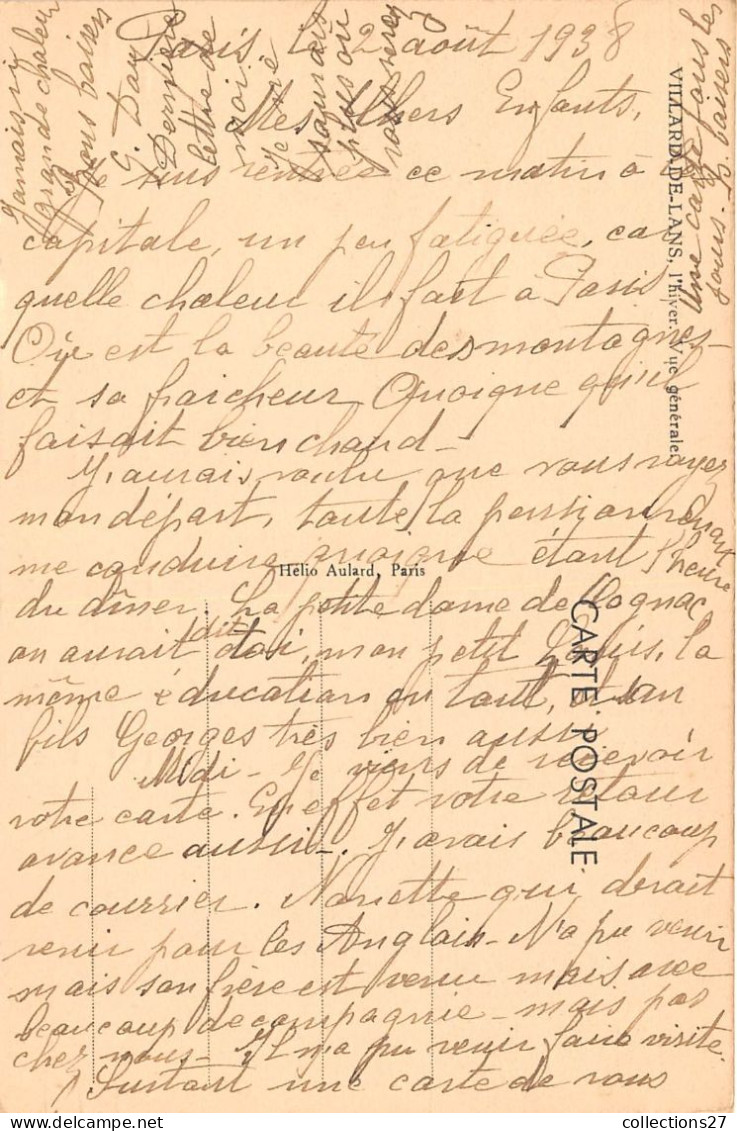 Paris, le 2 août 1938
Mes Chers Enfants,
Je suis rentrée ce matin à la
capitale, un peu fatiguée, car
quelle chaleur il fait à Paris
Où est la beauté des montagnes
et sa fraicheur Quoique qu'il
faisait bien chaud -
J'aurais voulu que vous voyez
mon départ, toute la pension
me conduire quoique étant avant l'heure
du dîner. La petite dame de Cognac,
on aurait dit toi, mon petit Louis, la
même éducation en tout, et son
fils Georges très bien aussi
Midi - Je viens de recevoir
votre carte. En effet votre retour
avance aussi -. J'avais beaucoup
de courrier. Nanette qui devait
venir pour les Anglais - N'a pu venir
mais son frère est venu mais avec
beaucoup de compagnie - mais pas
chez nous - Il n'a pu venir faire visite.
Surtout une carte de vous
une carte tous les
jours. B. baisers
Jamais vu
grande chaleur
Bons baisers
G. Day
Dernière
lettre de
moi
Je ne
saurais
plus où
vous serez
VILLARD-DE-LANS, l'hiver. Vue générale.
Hélio Aulard, Paris
CARTE POSTALE
collections27